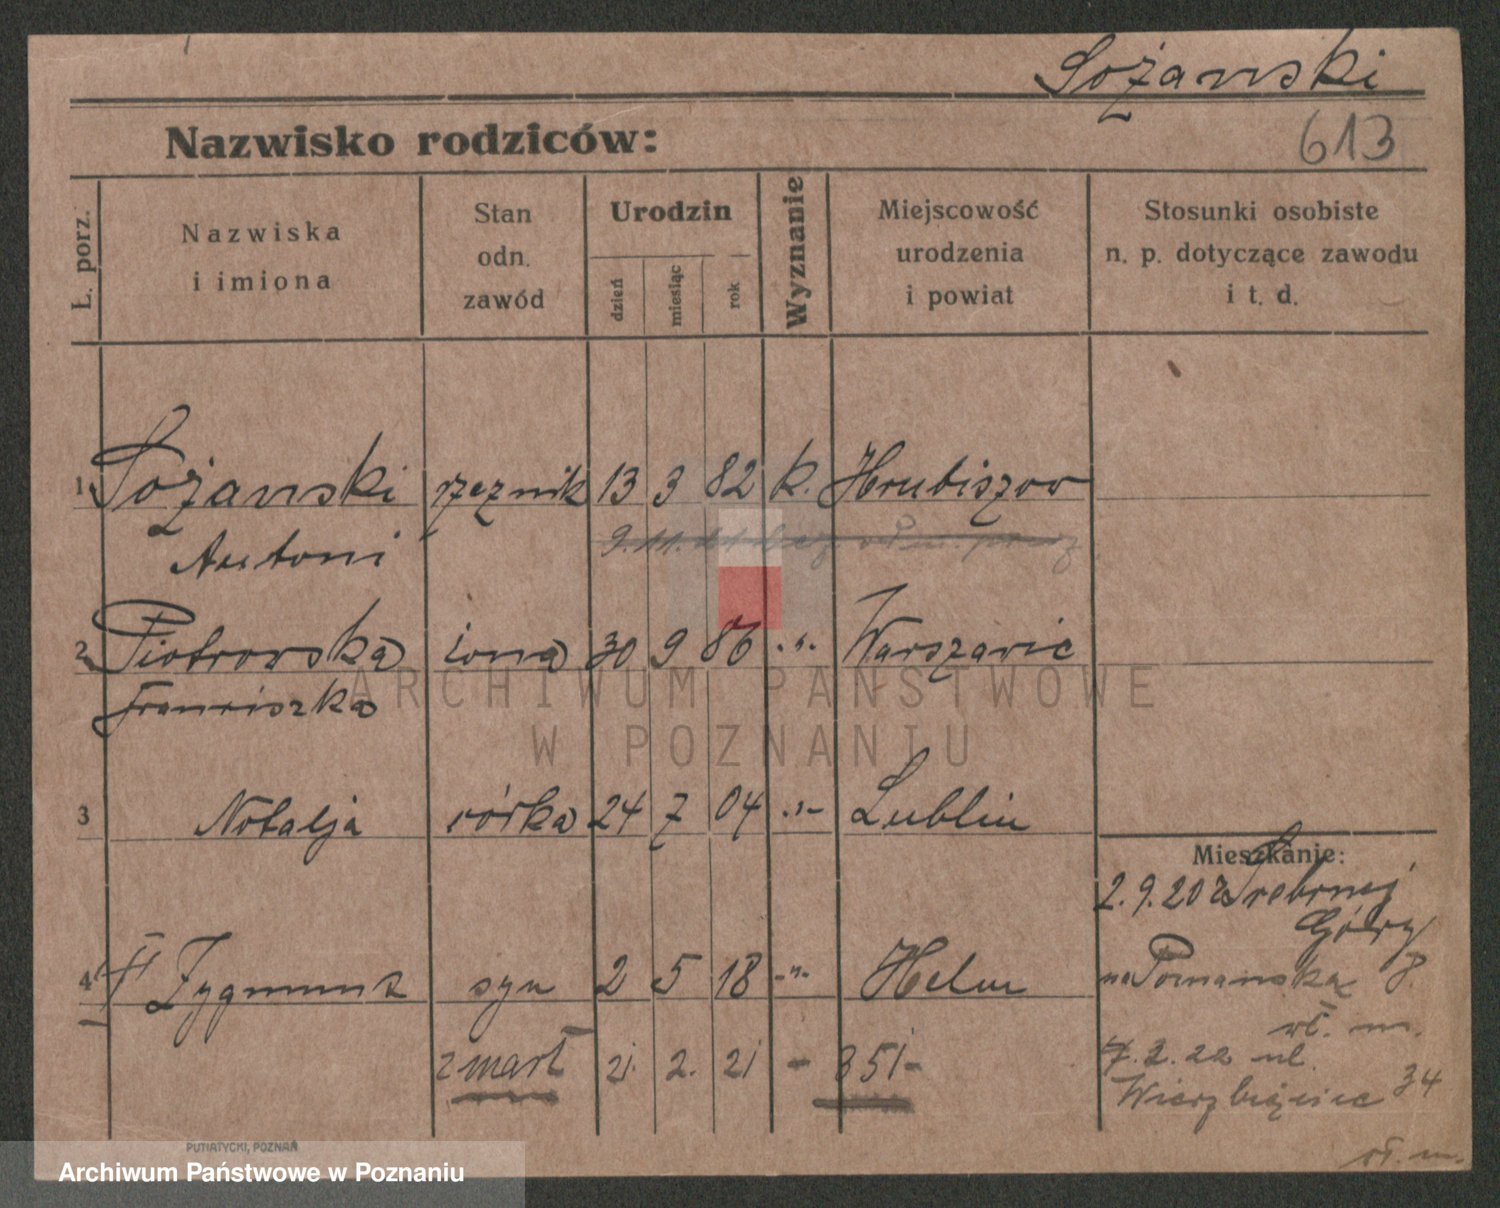 Sożanski
Nazwisko rodziców:
613
L. porz.
Nazwiska
i imiona
Stan
odn.
zawód
Urodzin
dzień
miesiąc
rok
Wyznanie
Miejscowość
urodzenia
i powiat
Stosunki osobiste
n. p. dotyczące zawodu
i t. d.
1 Sożanski rzeznik 13 3 82 k. Hrubiszow
Antoni
9. 11. 21
2 Piotrowska żona 30 9 86 -"- Warszawie
Franciszka
3 Natalja córka 24 7 04 -"- Lublin
Mieszkanie:
2.9.20 z Srebrnej
Góry
4 † Zygmunt syn 2 5 18 -"- Helm
na Poznańska 8.
wł. m.
zmarł 21. 2. 21 - 351-
7.2.22 ul.
Wierzbięcice 34
wł. m.
ARCHIWUM PAŃSTWOWE
W POZNANIU
PUTIATYCKI, POZNAŃ
Archiwum Państwowe w Poznaniu